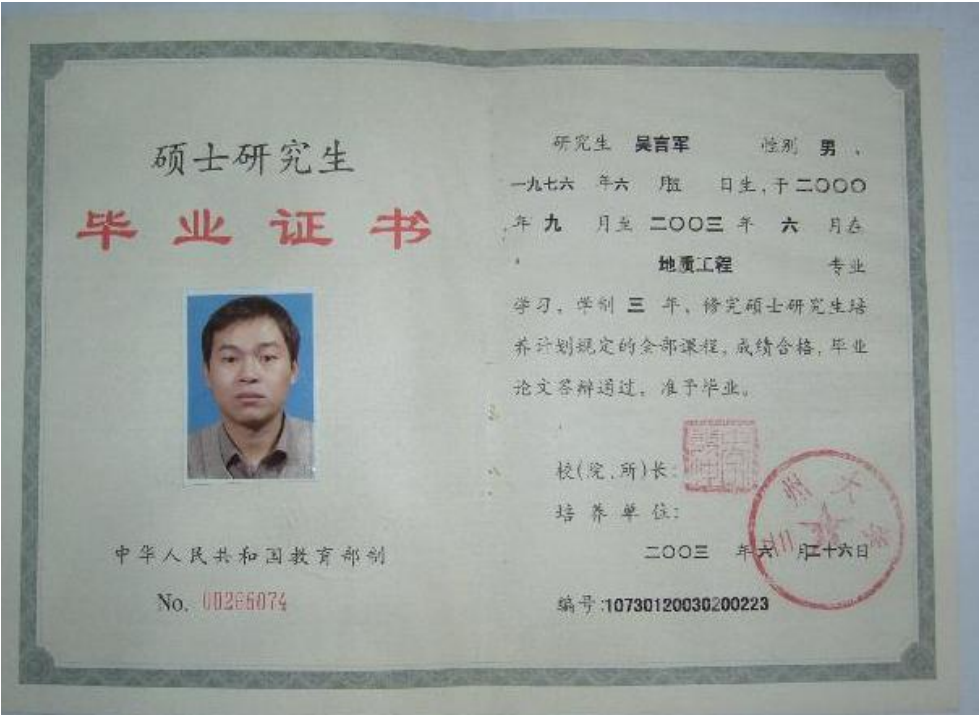 硕士研究生
毕业证书
中华人民共和国教育部制
No. 00266074
研究生 吴言军 性别 男、
一九七六 年六 月五 日生,于二〇〇〇
年 九 月至 二〇〇三 年 六 月在
地质工程 专业
学习,学制 三 年,修完硕士研究生培
养计划规定的全部课程,成绩合格,毕业
论文答辩通过。准予毕业。
校(院、所)长:
培养单位:
兰州大学
二〇〇三 年六 月二十六日
编号:10730120030200223